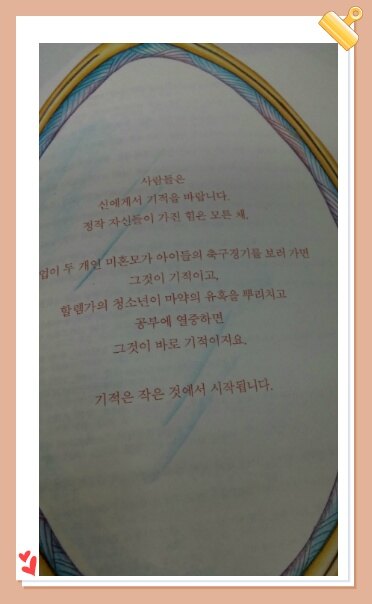 사람들은
신에게서 기적을 바랍니다.
정작 자신들이 가진 힘은 모른 채.
업이 두 개인 미혼모가 아이들의 축구경기를 보러 가면
그것이 기적이고,
할렘가의 청소년이 마약의 유혹을 뿌리치고
공부에 열중하면
그것이 바로 기적이지요.
기적은 작은 것에서 시작됩니다.